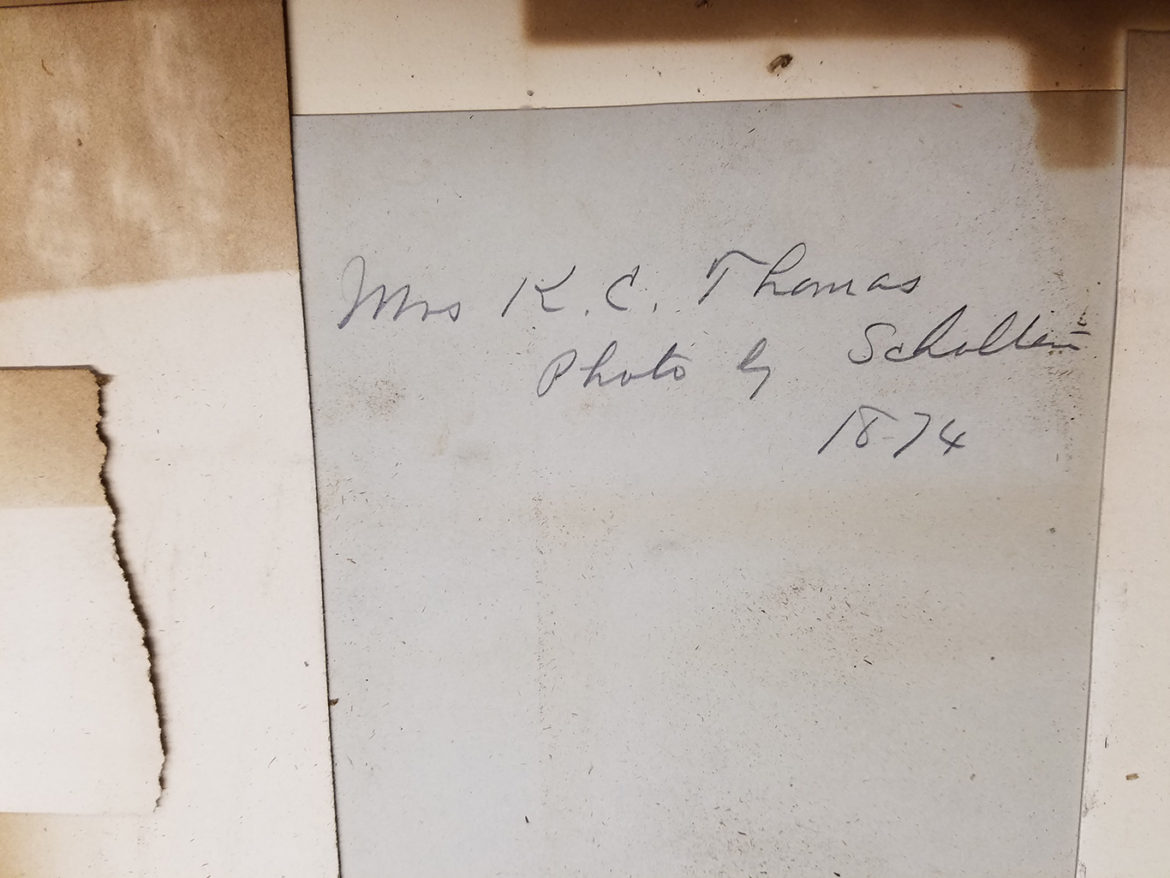 Mrs K. C. Thomas
Photo by Scholten
1874